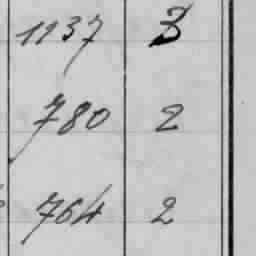 1137 3
780 2
764 2